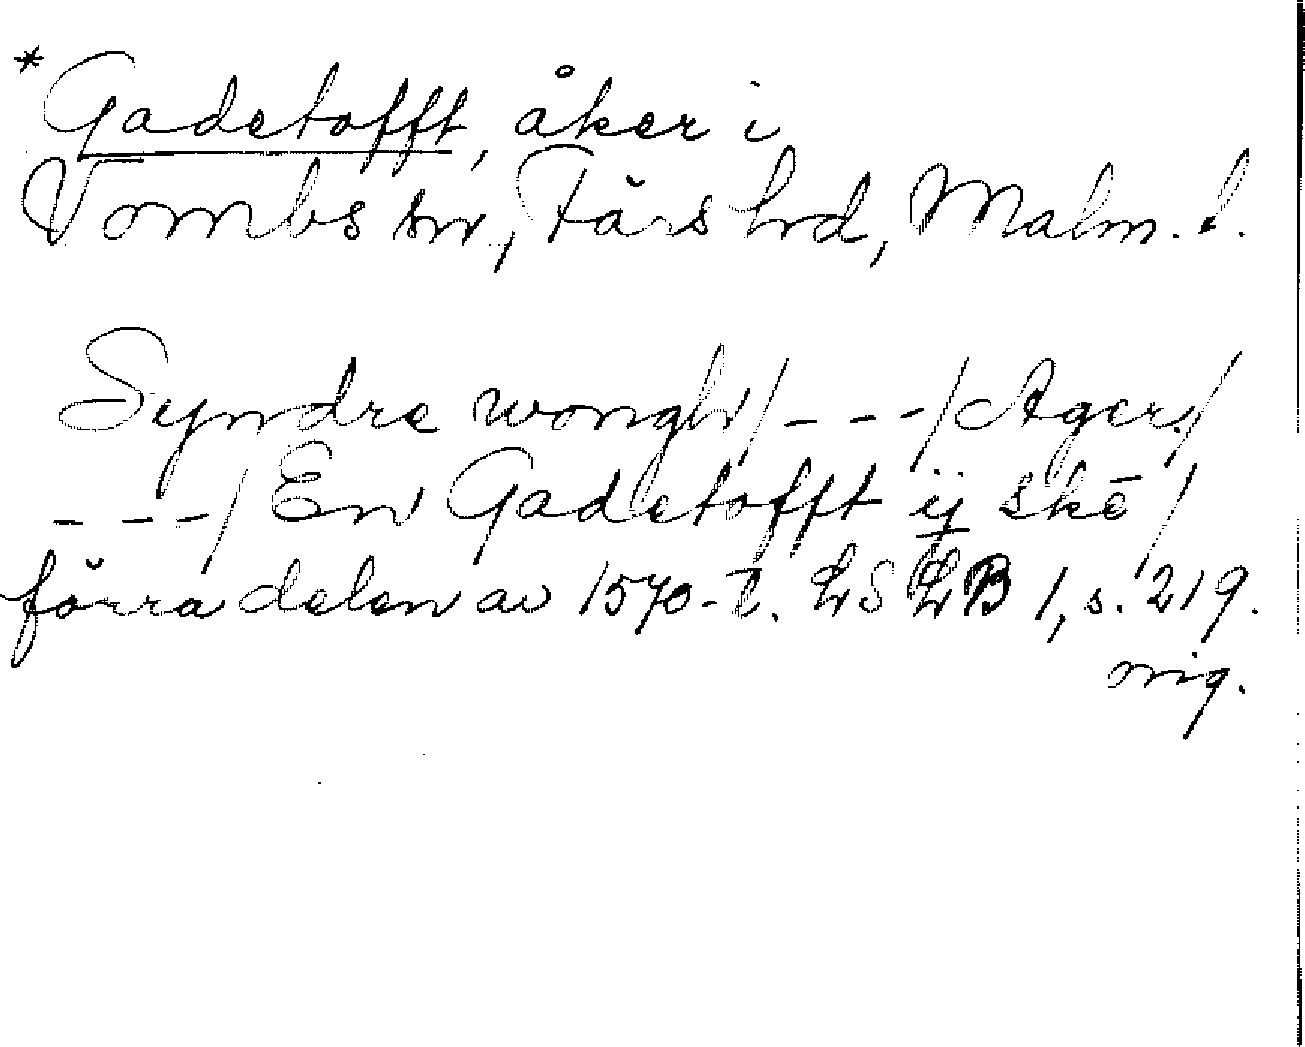 *Gadetofft, åker i
Vombs sn, Färs hrd, Malm. l.
Syndre wongh/ - - - /Ager/
- - - / En Gadetofft ij skē /
förra delen av 1570-t. LSLB 1, s. 219.
orig.